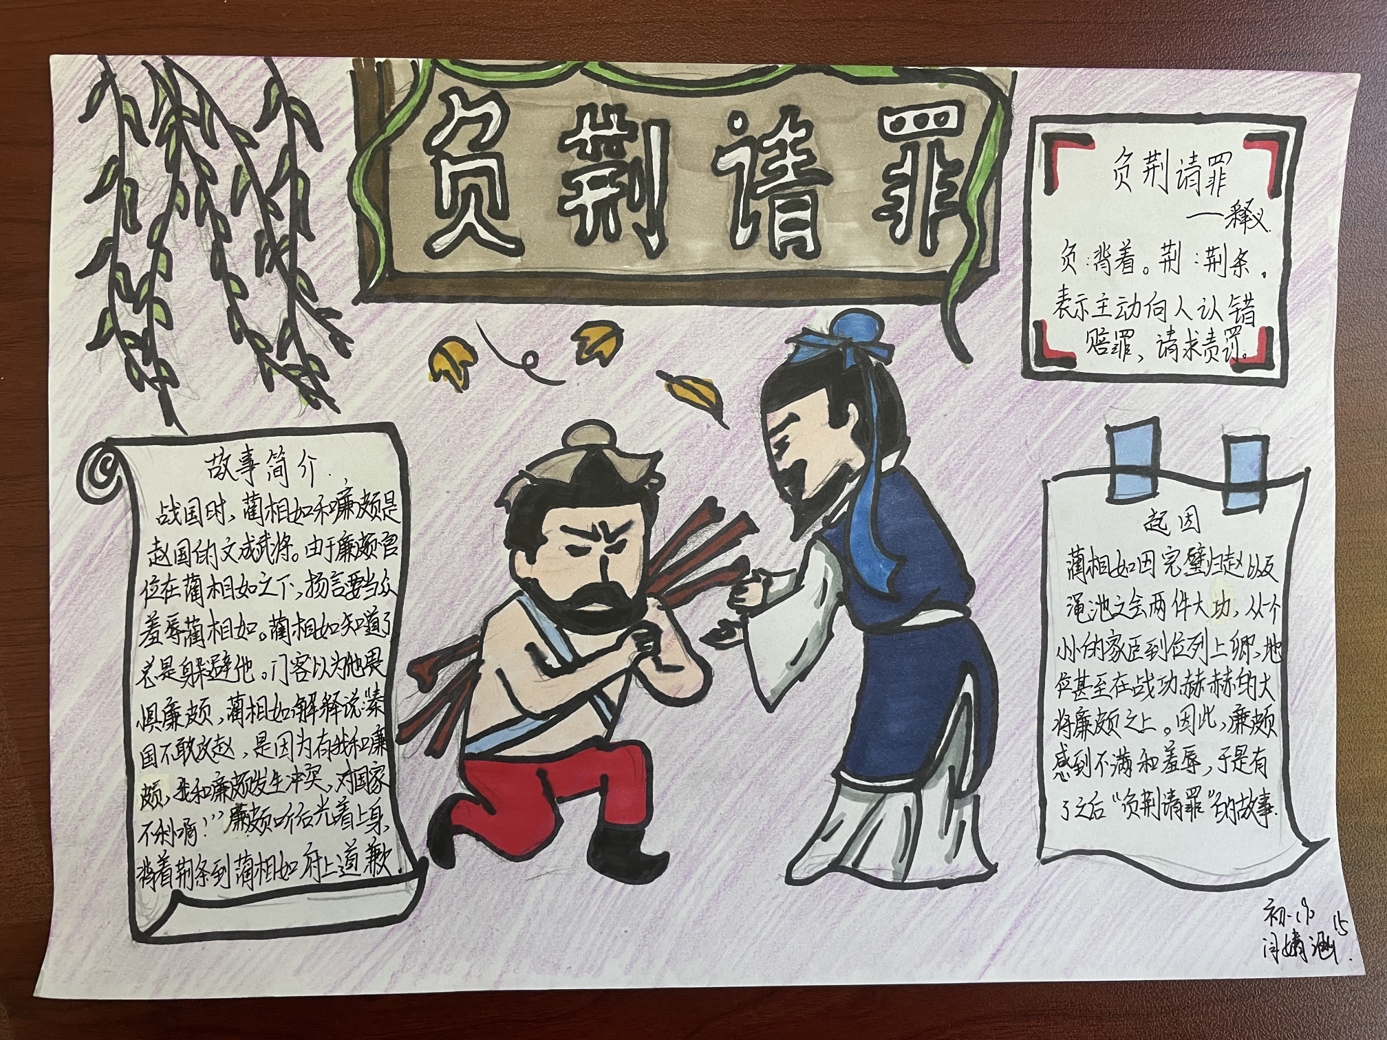 负荆请罪
负荆请罪
——释义
负：背着。荆：荆条。
表示主动向人认错
赔罪，请求责罚。
故事简介
战国时，蔺相如和廉颇是
赵国的文成武将。由于廉颇官
位在蔺相如之下，扬言要当众
羞辱蔺相如。蔺相如知道了
老是躲避他。门客以为他畏
惧廉颇，蔺相如解释说“秦
国不敢攻赵，是因为有我和廉
颇，我和廉颇发生冲突，对国家
不利啊！”廉颇听后光着上身，
背着荆条到蔺相如府上道歉.
起因
蔺相如因完璧归赵以及
渑池之会两件大功，从个
小小的家臣到位列上卿，地
位甚至在战功赫赫的大
将廉颇之上。因此，廉颇
感到不满和羞辱，于是有
了之后“负荆请罪”的故事.
15